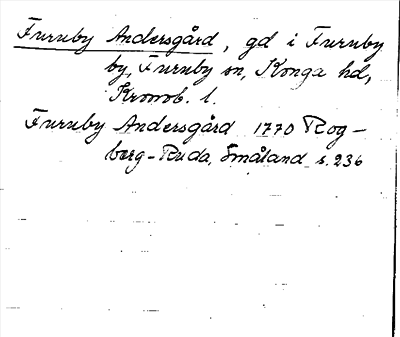 Furuby Andersgård, gd i Furuby
by, Furuby sn, Konga hd,
Kronob. l.
Furuby Andersgård 1770 Rog-
berg-Ruda, Småland s. 236